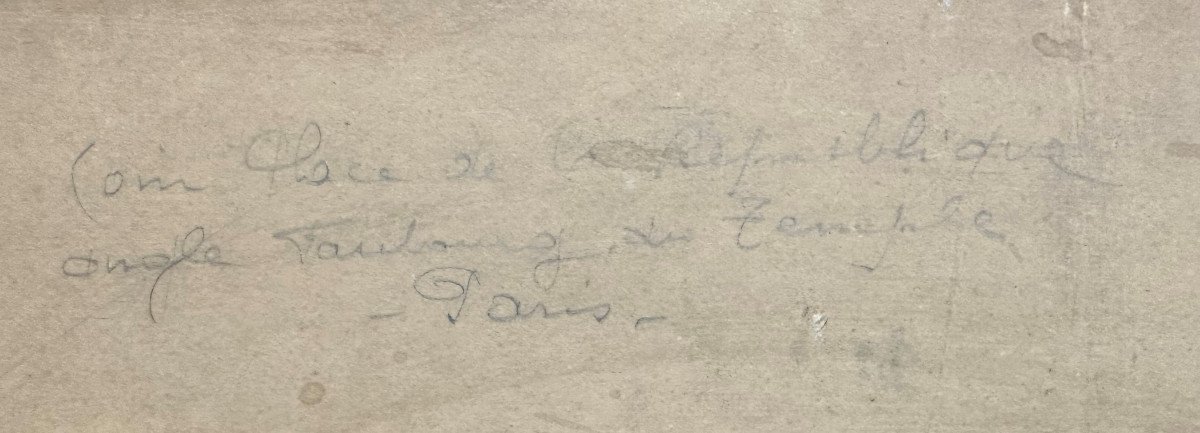 Coin Place de la République
angle Faubourg du Temple
- Paris -